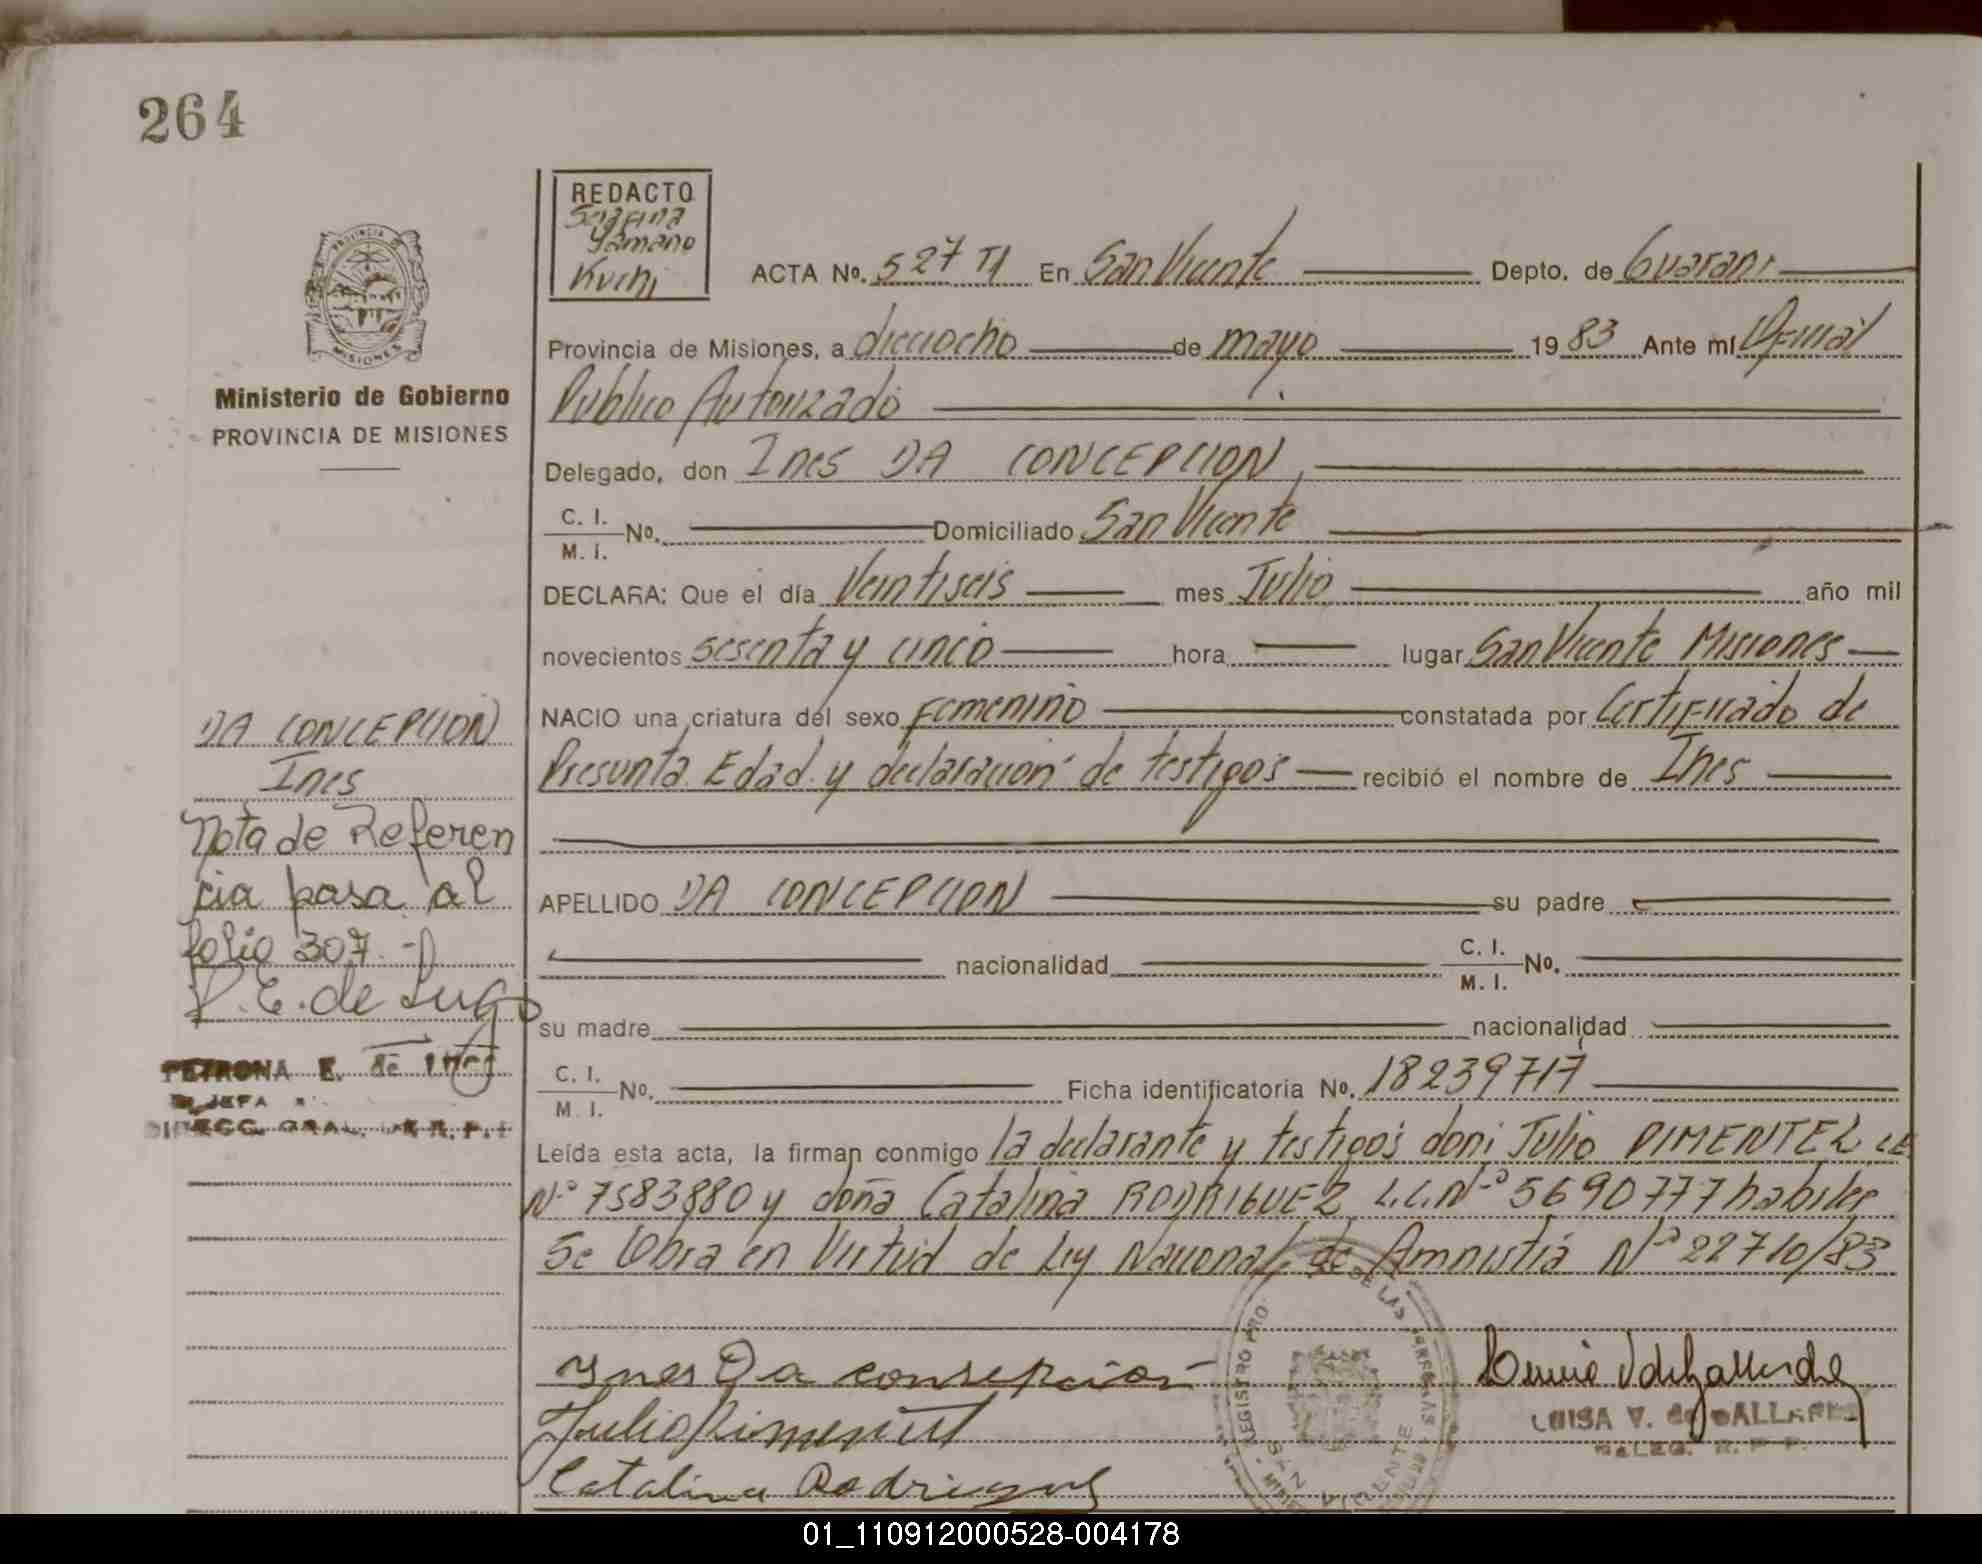 264
REDACTO
Serafina
Yamano
Kuchi
PROVINCIA DE
MISIONES
Ministerio de Gobierno
PROVINCIA DE MISIONES
ACTA No. 527 TI En San Vicente Depto. de Guarani
Provincia de Misiones, a dieciocho de mayo 1983 Ante mí Oficial
Publico Autorizado
Delegado, don Ines DA CONCEPCION,
C. I.
M. I. No. Domiciliado San Vicente
DECLARA: Que el día Veintiseis mes Julio año mil
novecientos sesenta y cinco hora lugar San Vicente Misiones
NACIO una criatura del sexo Femenino constatada por Certificado de
Presunta Edad y declaracion de testigos recibió el nombre de Ines
APELLIDO DA CONCEPCION su padre
nacionalidad C. I.
M. I. No.
su madre nacionalidad
C. I.
M. I. No. Ficha identificatoria No. 18239717
Leída esta acta, la firman conmigo la declarante y testigos don: Julio PIMENTEL LE
Nº 7583880 y doña Catalina RODRIGUEZ L.C. Nº 5690777 habiles
Se Obra en Virtud de Ley Nacional de Amnistia Nº 22710/83
DA CONCEPCION
Ines
Nota de Referen
cia pasa al
folio 307.-
P. E. de Lugo
PETRONA E. de LUGO
JEFA
DIRECC. GRAL. DE R. P.
Ynes Da consepcion
Julio Pimentel
Catalina Rodriguez
REGISTRO PRO DE LAS PERSONAS
SAN VICENTE
LUISA V. de GALLARDO
DELEG. R. P. P.
01_110912000528-004178